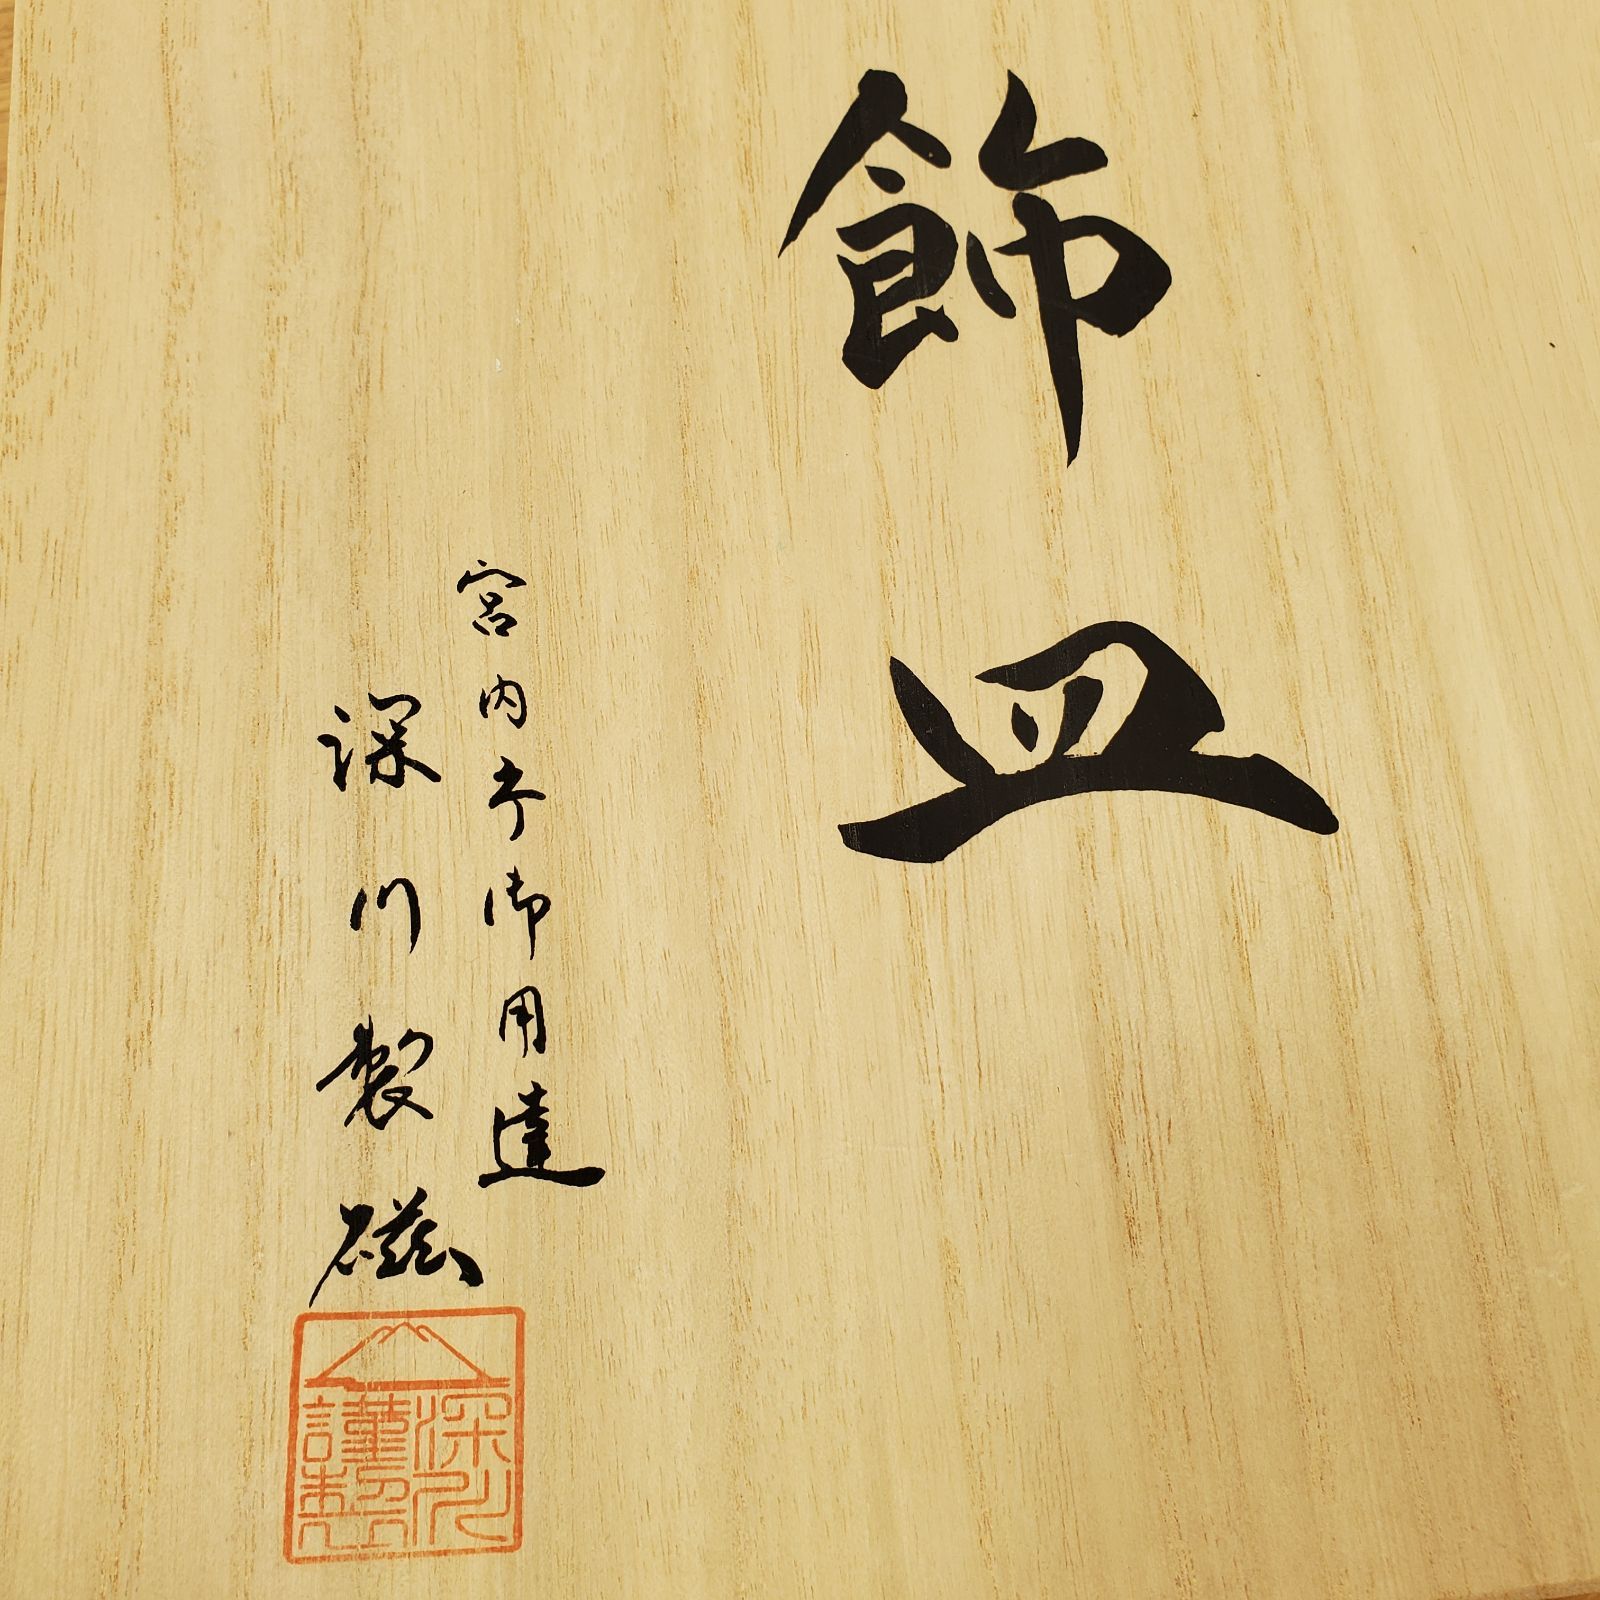 飾皿
宮内庁御用達
深川製磁
深川
謹製